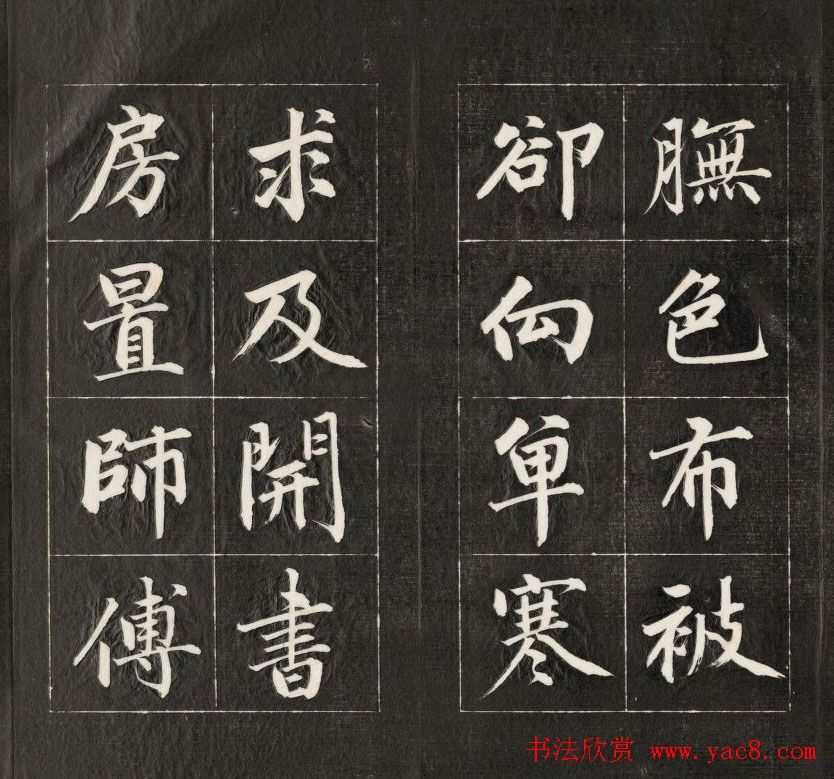 膴色布被
卻向单寒
求及開書
房置師傅
书法欣赏 www.yac8.com